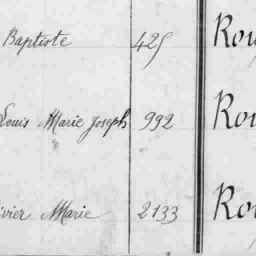 Baptiste 425 Rou
Louis Marie Joseph 992 Rou
Marie 2133 Rou